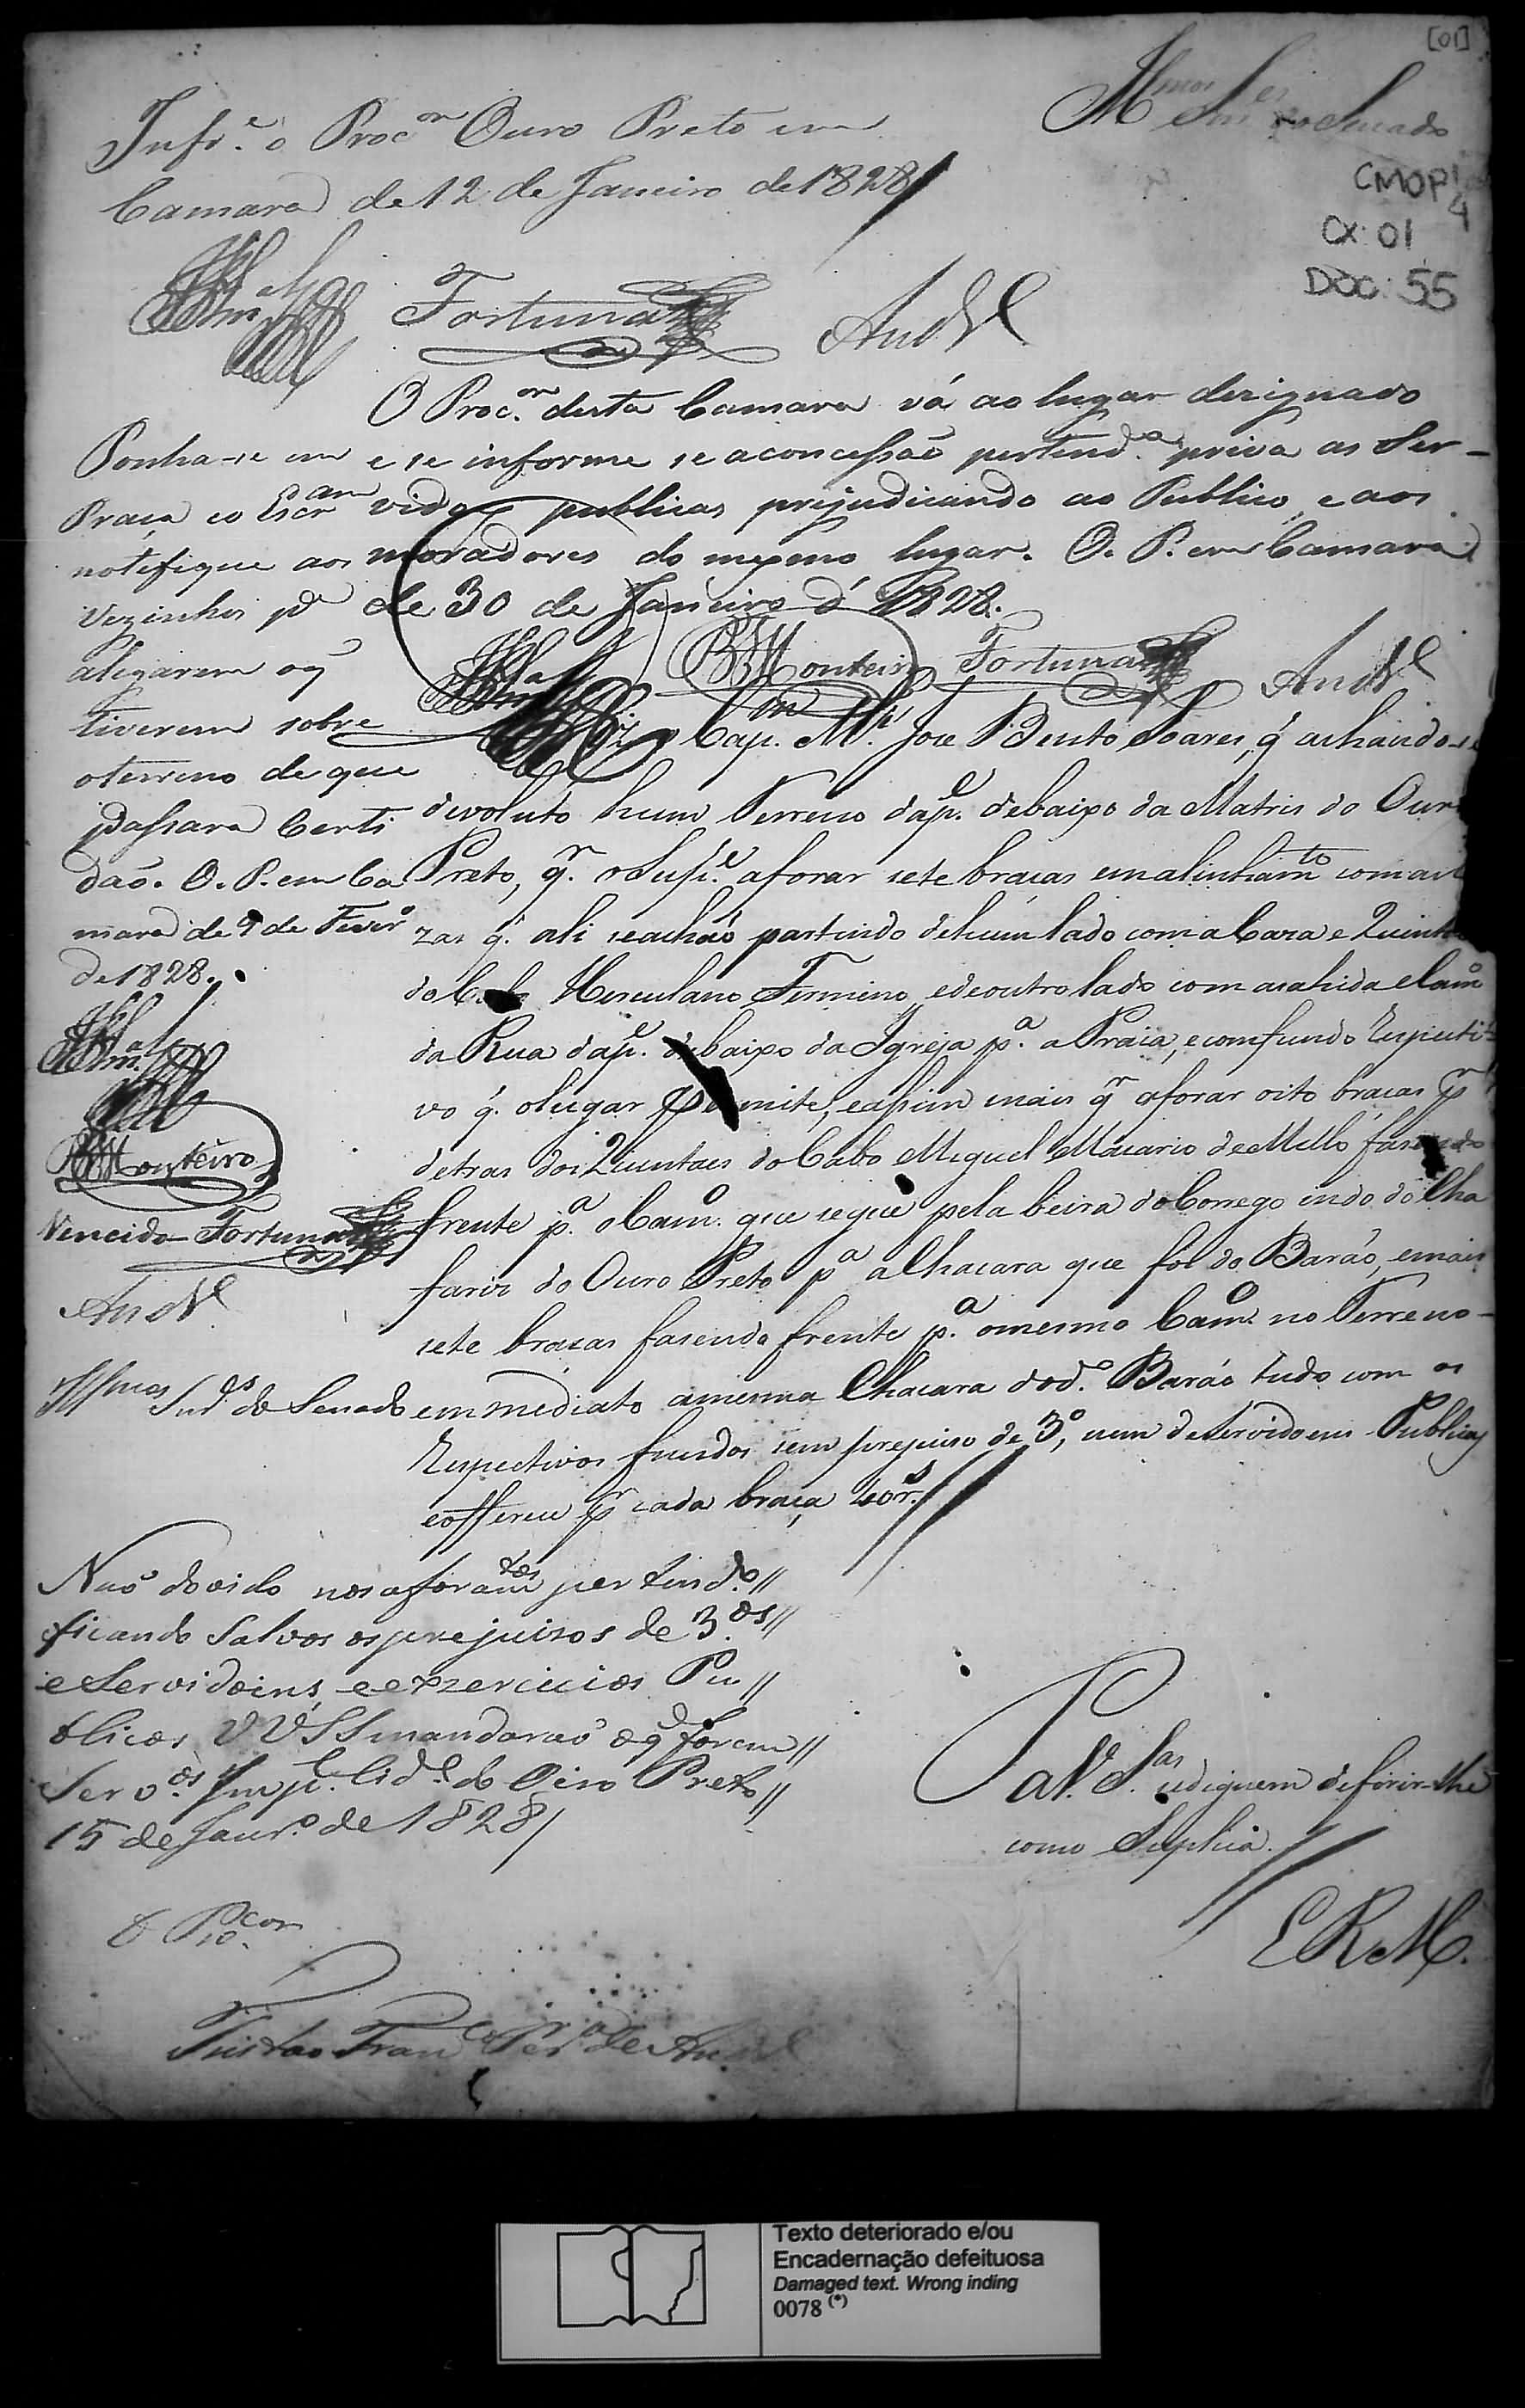 [01]
Ill.mos Snr.es do Senado
CMOP 1/4
CX: 01
DOC: 55
Infr.e o Proc.or Ouro Preto em
Camara de 12 de Janeiro de 1828
Fortuna
And.e
O Proc.or desta Camara vá ao lugar designado
e se informe se a concessaõ pertend.a priva as Ser-
vidoẽs publicas prejudicando ao Publico, e aos
moradores do mesmo lugar. O. P. em Camara
de 30 de Janeiro d' 1828.
BMonteiro Fortuna And.e
Ponha-se em
Praça e o Escr.am
notifique aos
Vezinhos p.a
alegarem o q̃
tiverem sobre
o terreno de que
passara Certi
daõ. O. P. em Ca
mara de 9 de Fever.o
de 1828.
BMonteiro
Vencido Fortuna
And.e
Diz o Cap.m M.r Joze Bento Soares, q̃ achando-se
devoluto hum Terreno da p.e debaixo da Matris do Ouro
Preto, q.r o Sup.e aforar sete braças em alinham.to com as
zas q̃. ali se achaõ partindo de hum lado com a Caza e Quint
do Herculano Firmino, e de outro lado com a sahida e Cam.o
da Rua da p.e debaixo da Igreja p.a a Praia, e com fundo Respecti-
vo q̃. o lugar permite, e assim mais q.r aforar oito braças p.r
detras dos Quintaes do Cabo Miguel Macario de Mello fasendo
frente p.a o Cam.o que segue pela beira do Corrego indo do Cha
fariz do Ouro Preto p.a a Chacara que foi do Baraõ, e mais
sete braças fasendo frente p.a o mesmo Cam.o no Terreno
emmediato a mesma Chacara do d.o Baraõ tudo com os
Respectivos fundos sem prejuiso de 3.o, nem de Servidoens Publicas
e offerece p.r cada braça 40 r.s
Ill.mos Snr.es do Senado
Naõ duvido nos aforam.tos pertend.os //
ficando Salvos os prejuizos de 3.os //
e Servidoẽns, e exzercicios Pu //
blicos V V S S mandaraõ o q̃ forem //
Serv.os Imp.l Cid.e do Oiro Preto //
15 de Janr.o de 1828 /
O Proc.or
Tristaõ Fran.co Per.a de And.e
P a V. S.as se dignem deferir-lhe
como Suplica.
E R M.
Texto deteriorado e/ou
Encadernação defeituosa
Damaged text. Wrong inding
0078 (*)